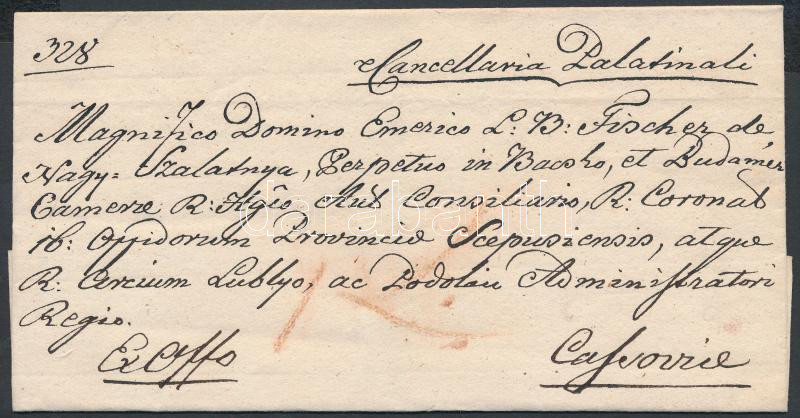 328
Cancellaria Palatinali
Magnifico Domino Emerico L: B: Fischer de
Nagy= Szalatnya, Perpetuo in Bacsko, et Budamér
Cameræ R: Hgīo Aul Consiliario, R: Coronal
16: Oppidorum Provinciæ Scepusiensis, atque
R: Arcium Lublyo, ac Podolin Administratori
Regio.
Ex Offo
Cassoviæ
darabanth